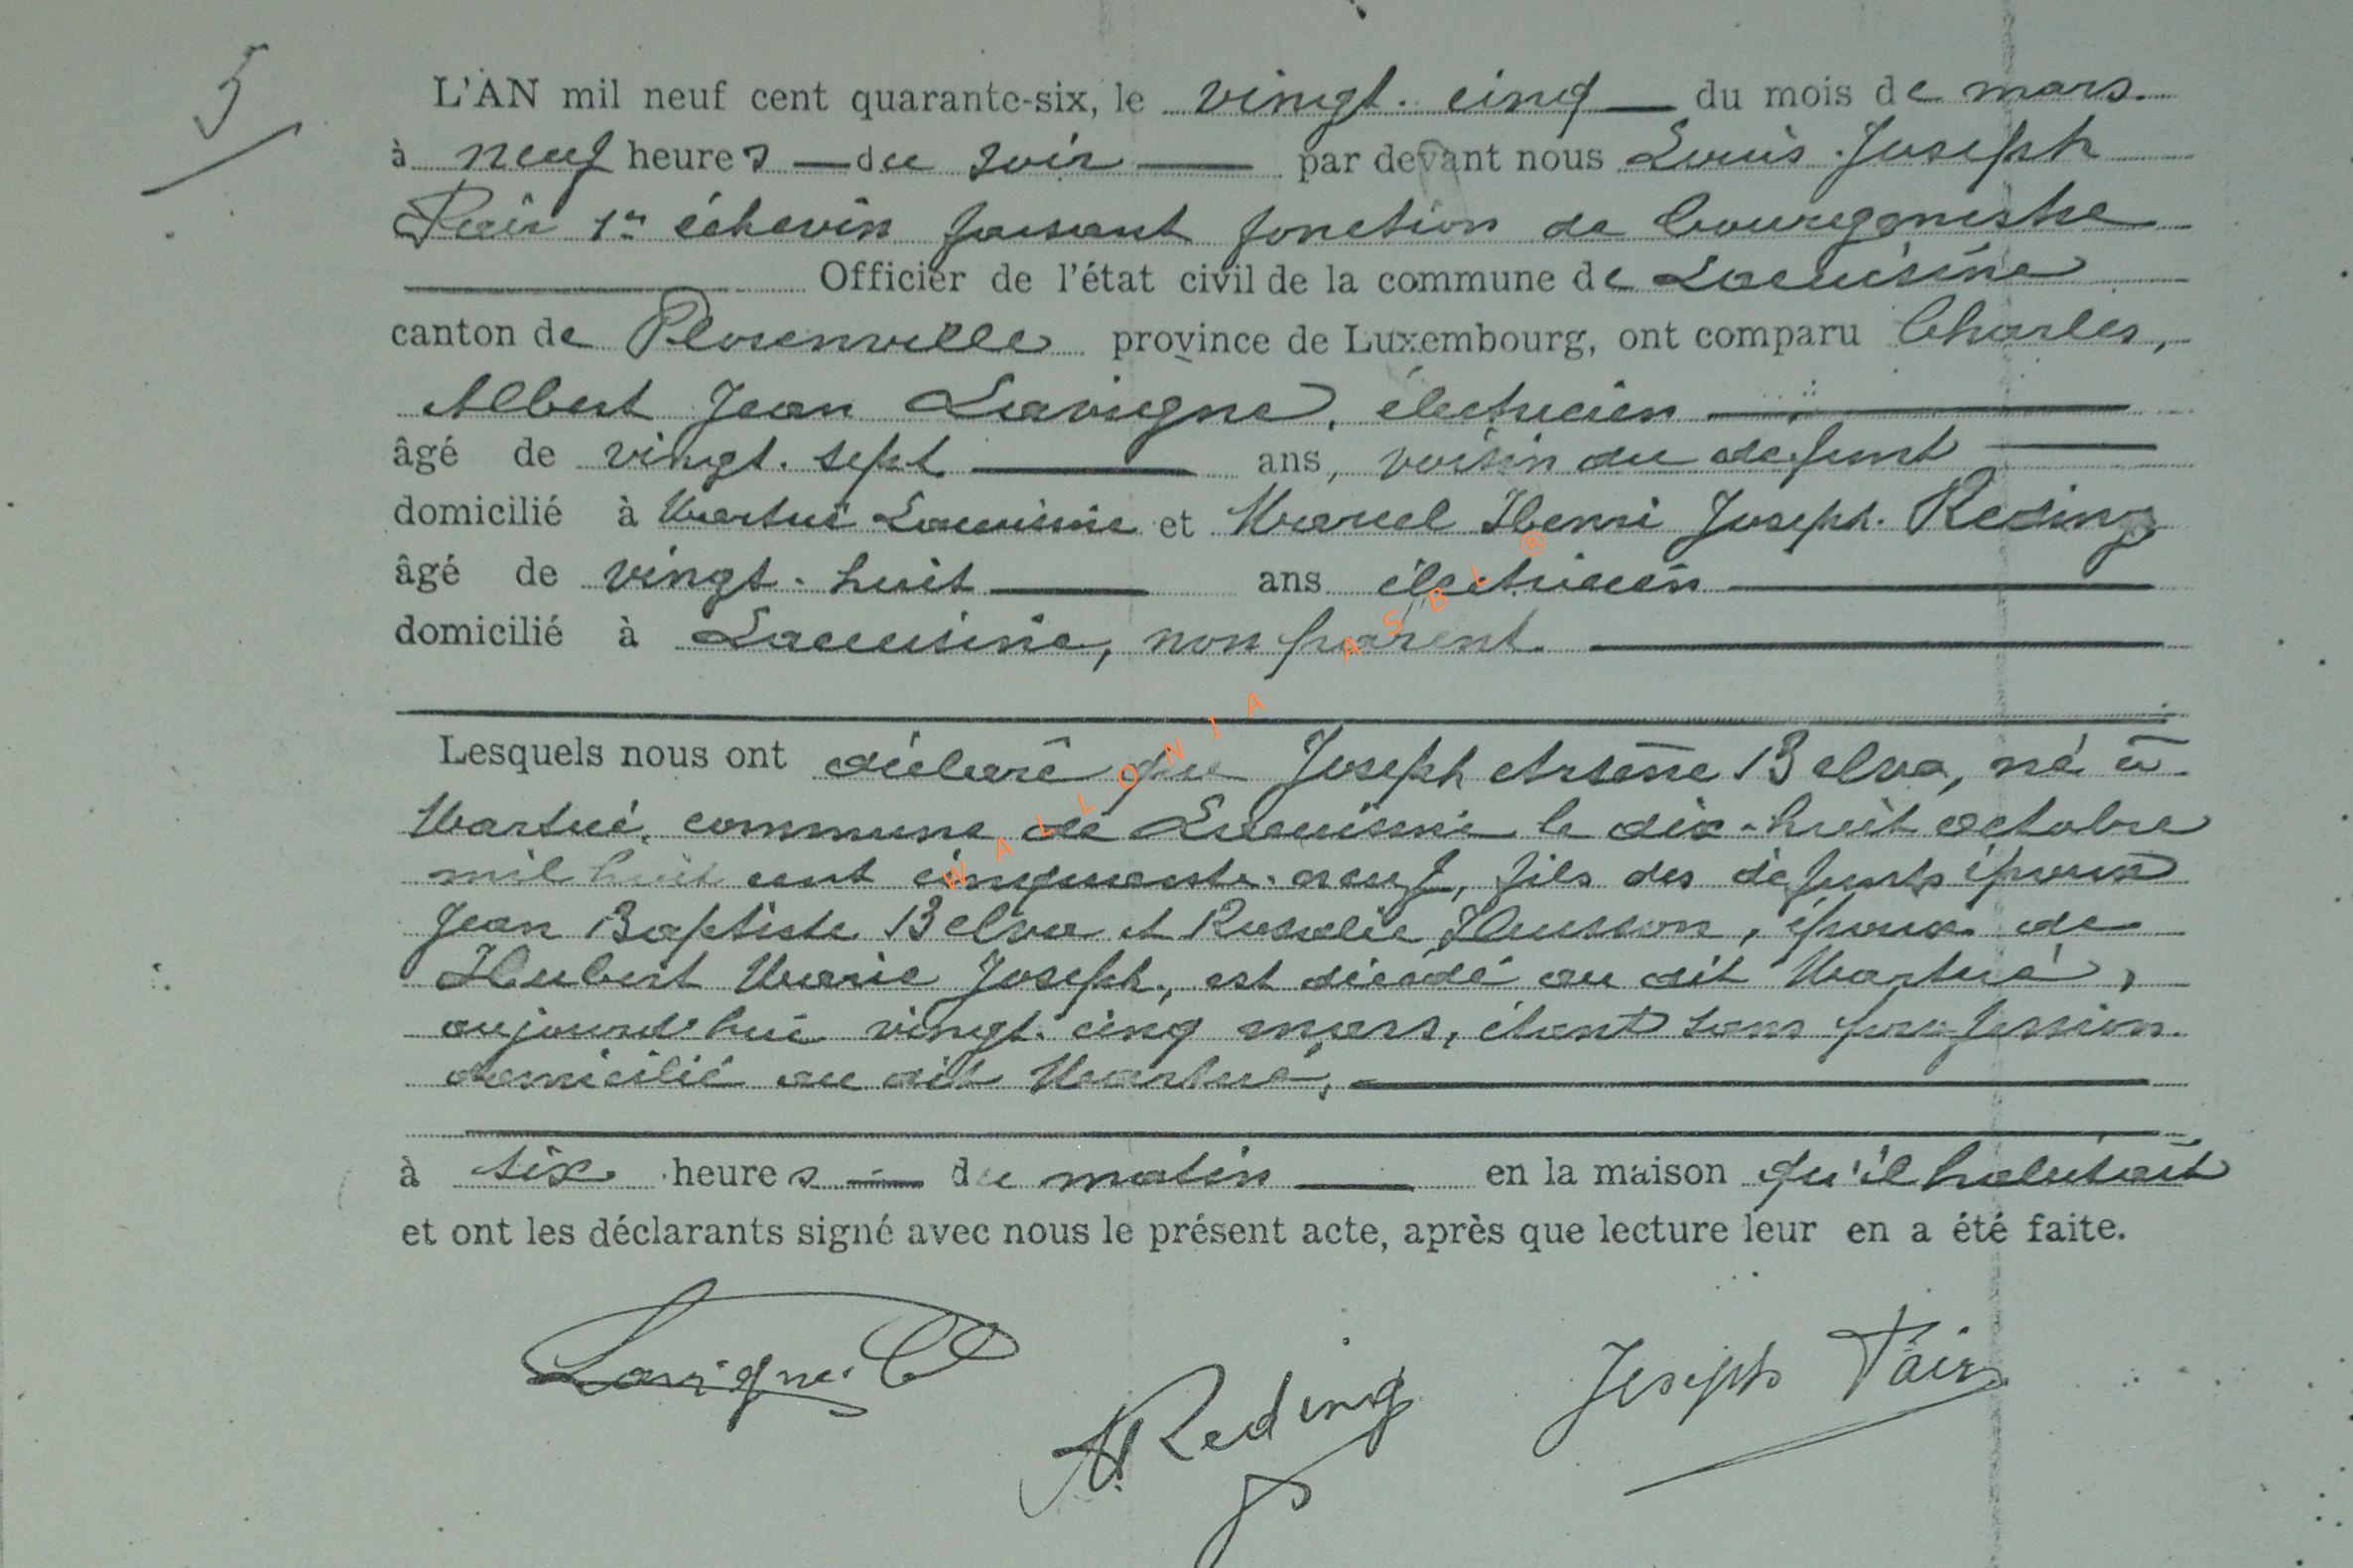 5
L'AN mil neuf cent quarante-six, le vingt-cinq du mois de mars
à neuf heures du soir par devant nous Louis Joseph
Pair 1er échevin faisant fonction de bourgmestre
Officier de l'état civil de la commune de Lacuisine
canton de Florenville province de Luxembourg, ont comparu Charles,
Albert Jean Lavigne, électricien
âgé de vingt-sept ans, voisin du défunt
domicilié à Martué Lacuisine et Marcel Henri Joseph Reding
âgé de vingt-huit ans électricien
domicilié à Lacuisine, non parent.
Lesquels nous ont déclaré que Joseph Arsène Belva, né à
Martué, commune de Lacuisine le dix-huit octobre
mil huit cent cinquante-neuf, fils des défunts époux
Jean Baptiste Belva et Rosalie Husson, époux de
Hubert Marie Joseph, est décédé au dit Martué,
aujourd'hui vingt-cinq mars, étant sans profession
domicilié au dit Martué,
à six heures du matin en la maison qu'il habitait
et ont les déclarants signé avec nous le présent acte, après que lecture leur en a été faite.
Lavigne C
Reding
Joseph Pair
WALLONIA ASBL ®